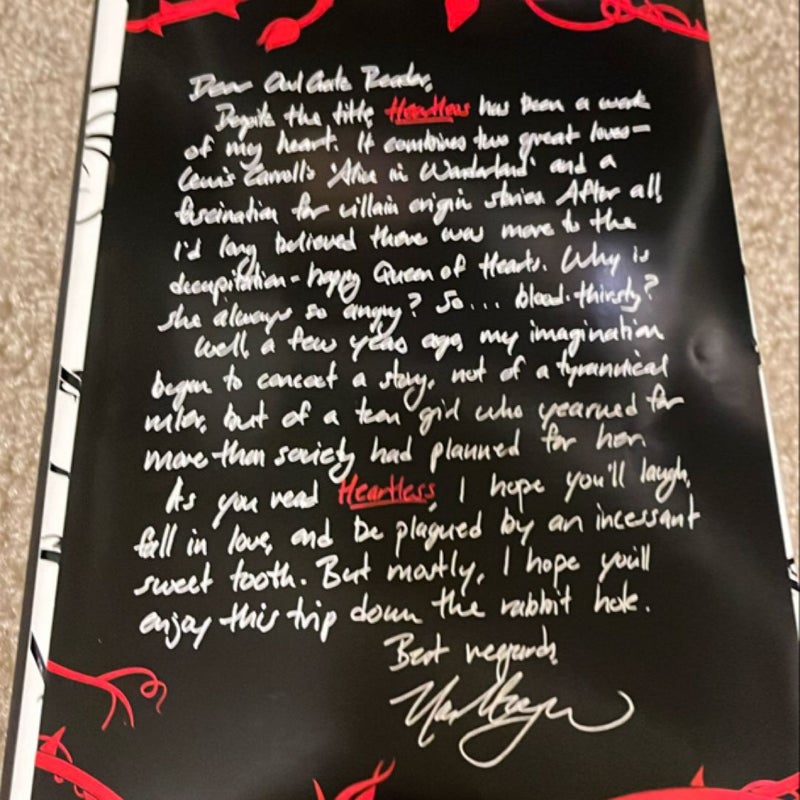 Dear OwlCrate Reader,
Despite the title, Heartless has been a work
of my heart. It combines two great loves—
Lewis Carroll's 'Alice in Wonderland' and a
fascination for villain origin stories. After all,
I'd long believed there was more to the
decapitation-happy Queen of Hearts. Why is
she always so angry? So... blood-thirsty?
Well, a few years ago, my imagination
began to concoct a story, not of a tyrannical
ruler, but of a teen girl who yearned for
more than society had planned for her.
As you read Heartless, I hope you'll laugh,
fall in love, and be plagued by an incessant
sweet tooth. But mostly, I hope you'll
enjoy this trip down the rabbit hole.
Best regards,